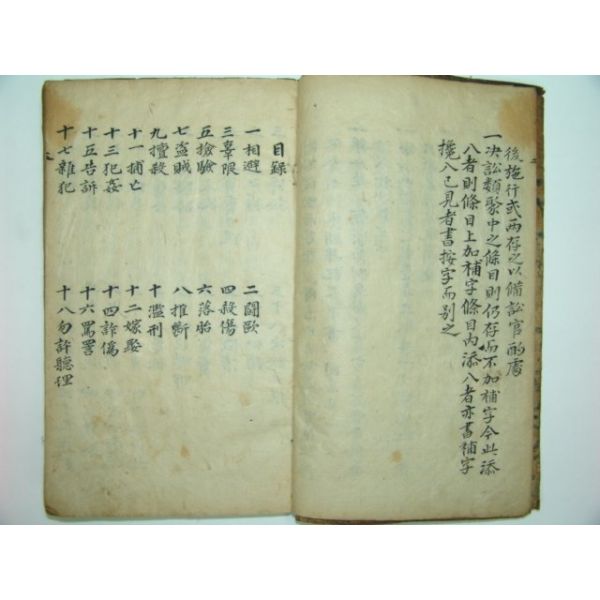 後施行或兩存之以備訟官酌處
一決訟類聚中之條目則仍存而不加補字今此添
八者則條目上加補字條目內添八者亦書補字
攙八已見者書按字而別之
目錄
一相避 二鬪歐
三辜限 四殺傷
五撿驗 六落胎
七盜賊 八推斷
九擅殺 十濫刑
十一捕亡 十二嫁娶
十三犯姦 十四詐僞
十五告訴 十六罵詈
十七雜犯 十八勿許聽理